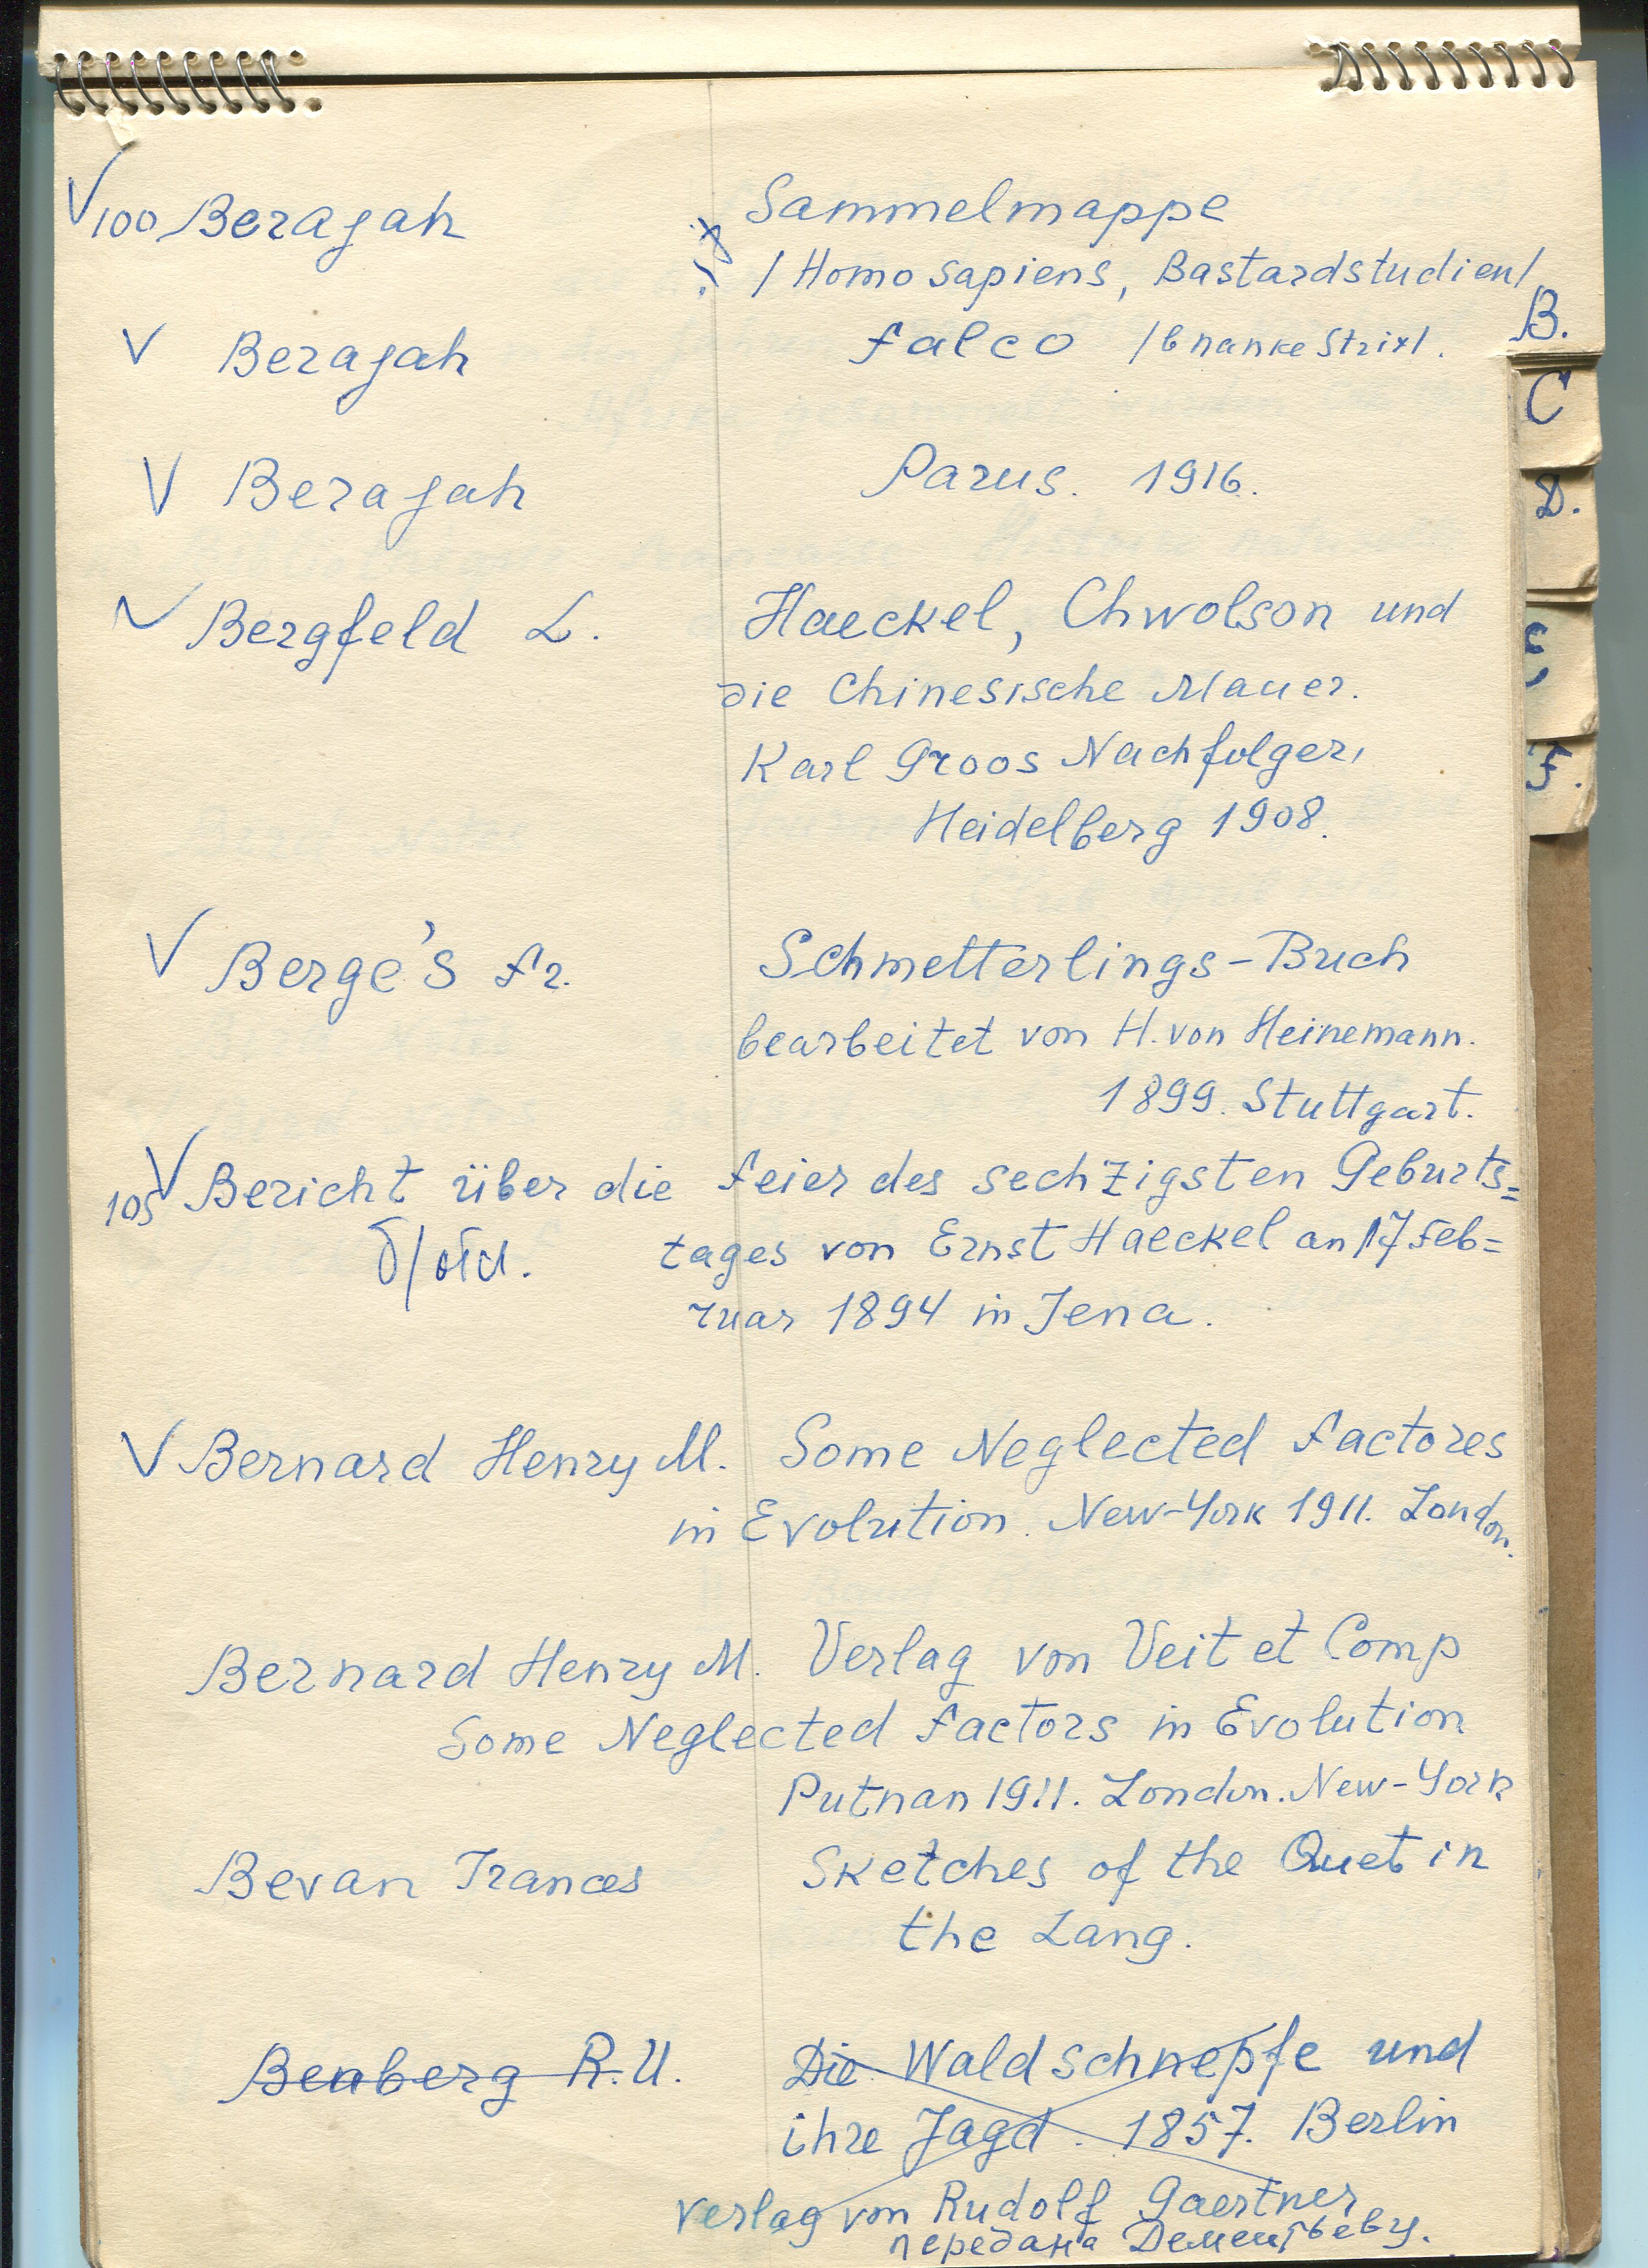 V 100 Berajah Sammelmappe
/Homo sapiens, Bastardstudien/
V Berajah Falco /в папке Strix/.
V Berajah Parus. 1916.
V Bergfeld L. Haeckel, Chwolson und
die Chinesische Mauer.
Karl Groos Nachfolger,
Heidelberg 1908.
V Berge's Fr. Schmetterlings-Buch
bearbeitet von H. von Heinemann.
1899. Stuttgart.
V 105 Bericht über die Feier des sechzigsten Geburts=
б/отд. tages von Ernst Haeckel an 17 Feb=
ruar 1894 in Jena.
V Bernard Henry M. Some Neglected Factores
in Evolution. New-York 1911. London.
Bernard Henry M. Verlag von Veit et Comp
Some Neglected Factors in Evolution
Putnan 1911. London. New-York
Bevan Frances Sketches of the Quet in
the Lang.
Benberg R.U. Die Waldschnepfe und
ihre Jagd. 1857. Berlin
Verlag von Rudolf Gaertner
передана Дементьеву.
B.
C
D.
F.